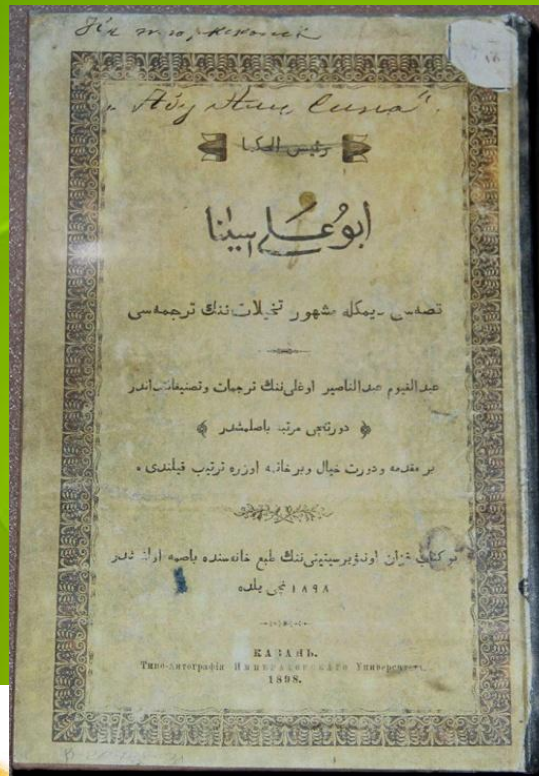 "Абу Али Сина".
رئيس الحكما
ابو علي سينا
قصه‌سى ديمكله مشهور تخيلات ننك ترجمه‌سى
عبد القيوم عبد الناصير اوغلى ننك ترجمات وتصنيفاتندندر
دورتنجى مرتبه باصلمشدر
بر مقدمه ودورت خيال وبر خاتمه اوزره ترتيب قيلندى
بو كتاب قزان اونيويرسيتيتى ننك طبع خانه‌سنده باصمه اولنمشدر
١٨٩٨ نجى يلده
КАЗАНЬ.
Типо-литографія Императорскаго Университета.
1898.